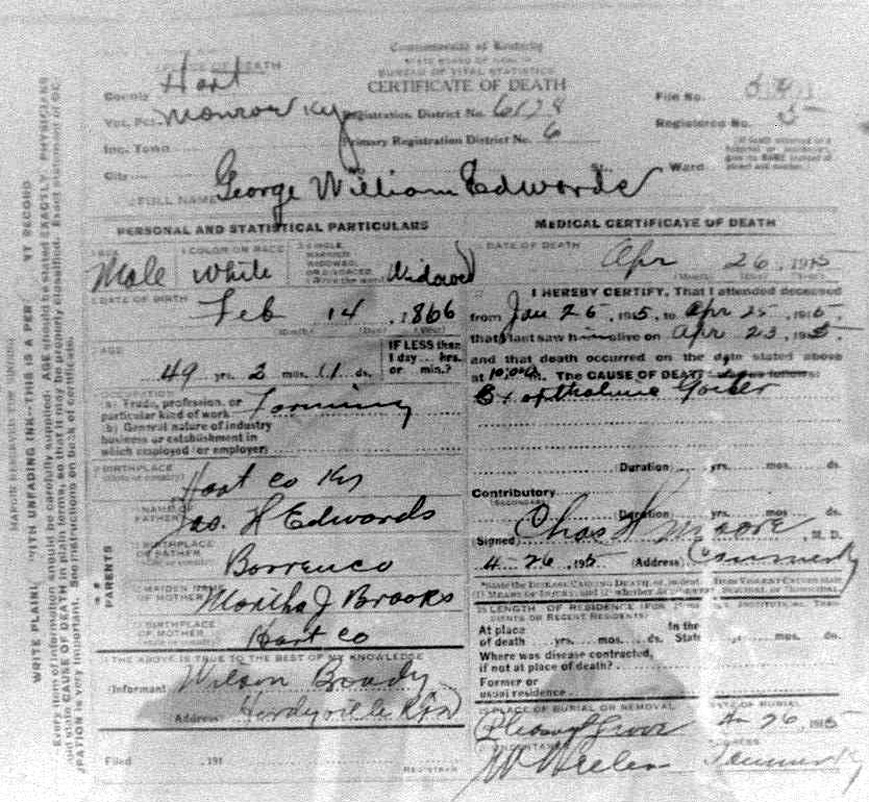 Commonwealth of Kentucky
STATE BOARD OF HEALTH
BUREAU OF VITAL STATISTICS
CERTIFICATE OF DEATH
PLACE OF DEATH
County Hart
Vot. Pct. Monroe Ky
Inc. Town
City
Registration District No. 6178
Primary Registration District No. 6
File No.
Registered No. 5
St. Ward
FULL NAME George William Edwards
PERSONAL AND STATISTICAL PARTICULARS
SEX Male
COLOR OR RACE White
SINGLE, MARRIED, WIDOWED, OR DIVORCED Widowed
DATE OF BIRTH Feb 14, 1866
AGE 49 yrs. 2 mos. 11 ds.
IF LESS than 1 day... hrs. or min.?
OCCUPATION
(a) Trade, profession, or particular kind of work Farming
(b) General nature of industry
business or establishment in
which employed (or employer)
BIRTHPLACE Hart Co Ky
PARENTS
NAME OF FATHER Jas. H Edwards
BIRTHPLACE OF FATHER Barren co
MAIDEN NAME OF MOTHER Martha J Brooks
BIRTHPLACE OF MOTHER Hart co
THE ABOVE IS TRUE TO THE BEST OF MY KNOWLEDGE
(Informant Wilson Broady
Address Hardyville
Filed , 191
REGISTRAR
MEDICAL CERTIFICATE OF DEATH
DATE OF DEATH Apr 26, 1915
I HEREBY CERTIFY, That I attended deceased
from Jan 26, 1915, to Apr 25, 1915,
that I last saw him alive on Apr 23, 1915
and that death occurred on the date stated above
at 10.00 m. The CAUSE OF DEATH was as follows:
Exopthalmic Goiter
(Duration) yrs. mos. ds.
Contributory
(SECONDARY)
(Duration) yrs. mos. ds.
(Signed) Chas H Moore, M. D.
4 - 26, 1915 (Address)
LENGTH OF RESIDENCE
At place of death yrs. mos. ds. In the State yrs. mos. ds.
Where was disease contracted,
if not at place of death?
Former or
usual residence
PLACE OF BURIAL OR REMOVAL Pleasant Grove
DATE OF BURIAL 4-26, 1915
UNDERTAKER
ADDRESS
MARGIN RESERVED FOR BINDING
WRITE PLAINLY WITH UNFADING INK--THIS IS A PER
Every item of information should be carefully supplied. AGE should be stated EXACTLY. PHYSICIANS
and state CAUSE OF DEATH in plain terms, so that it may be properly classified.
See instructions on back of certificate.